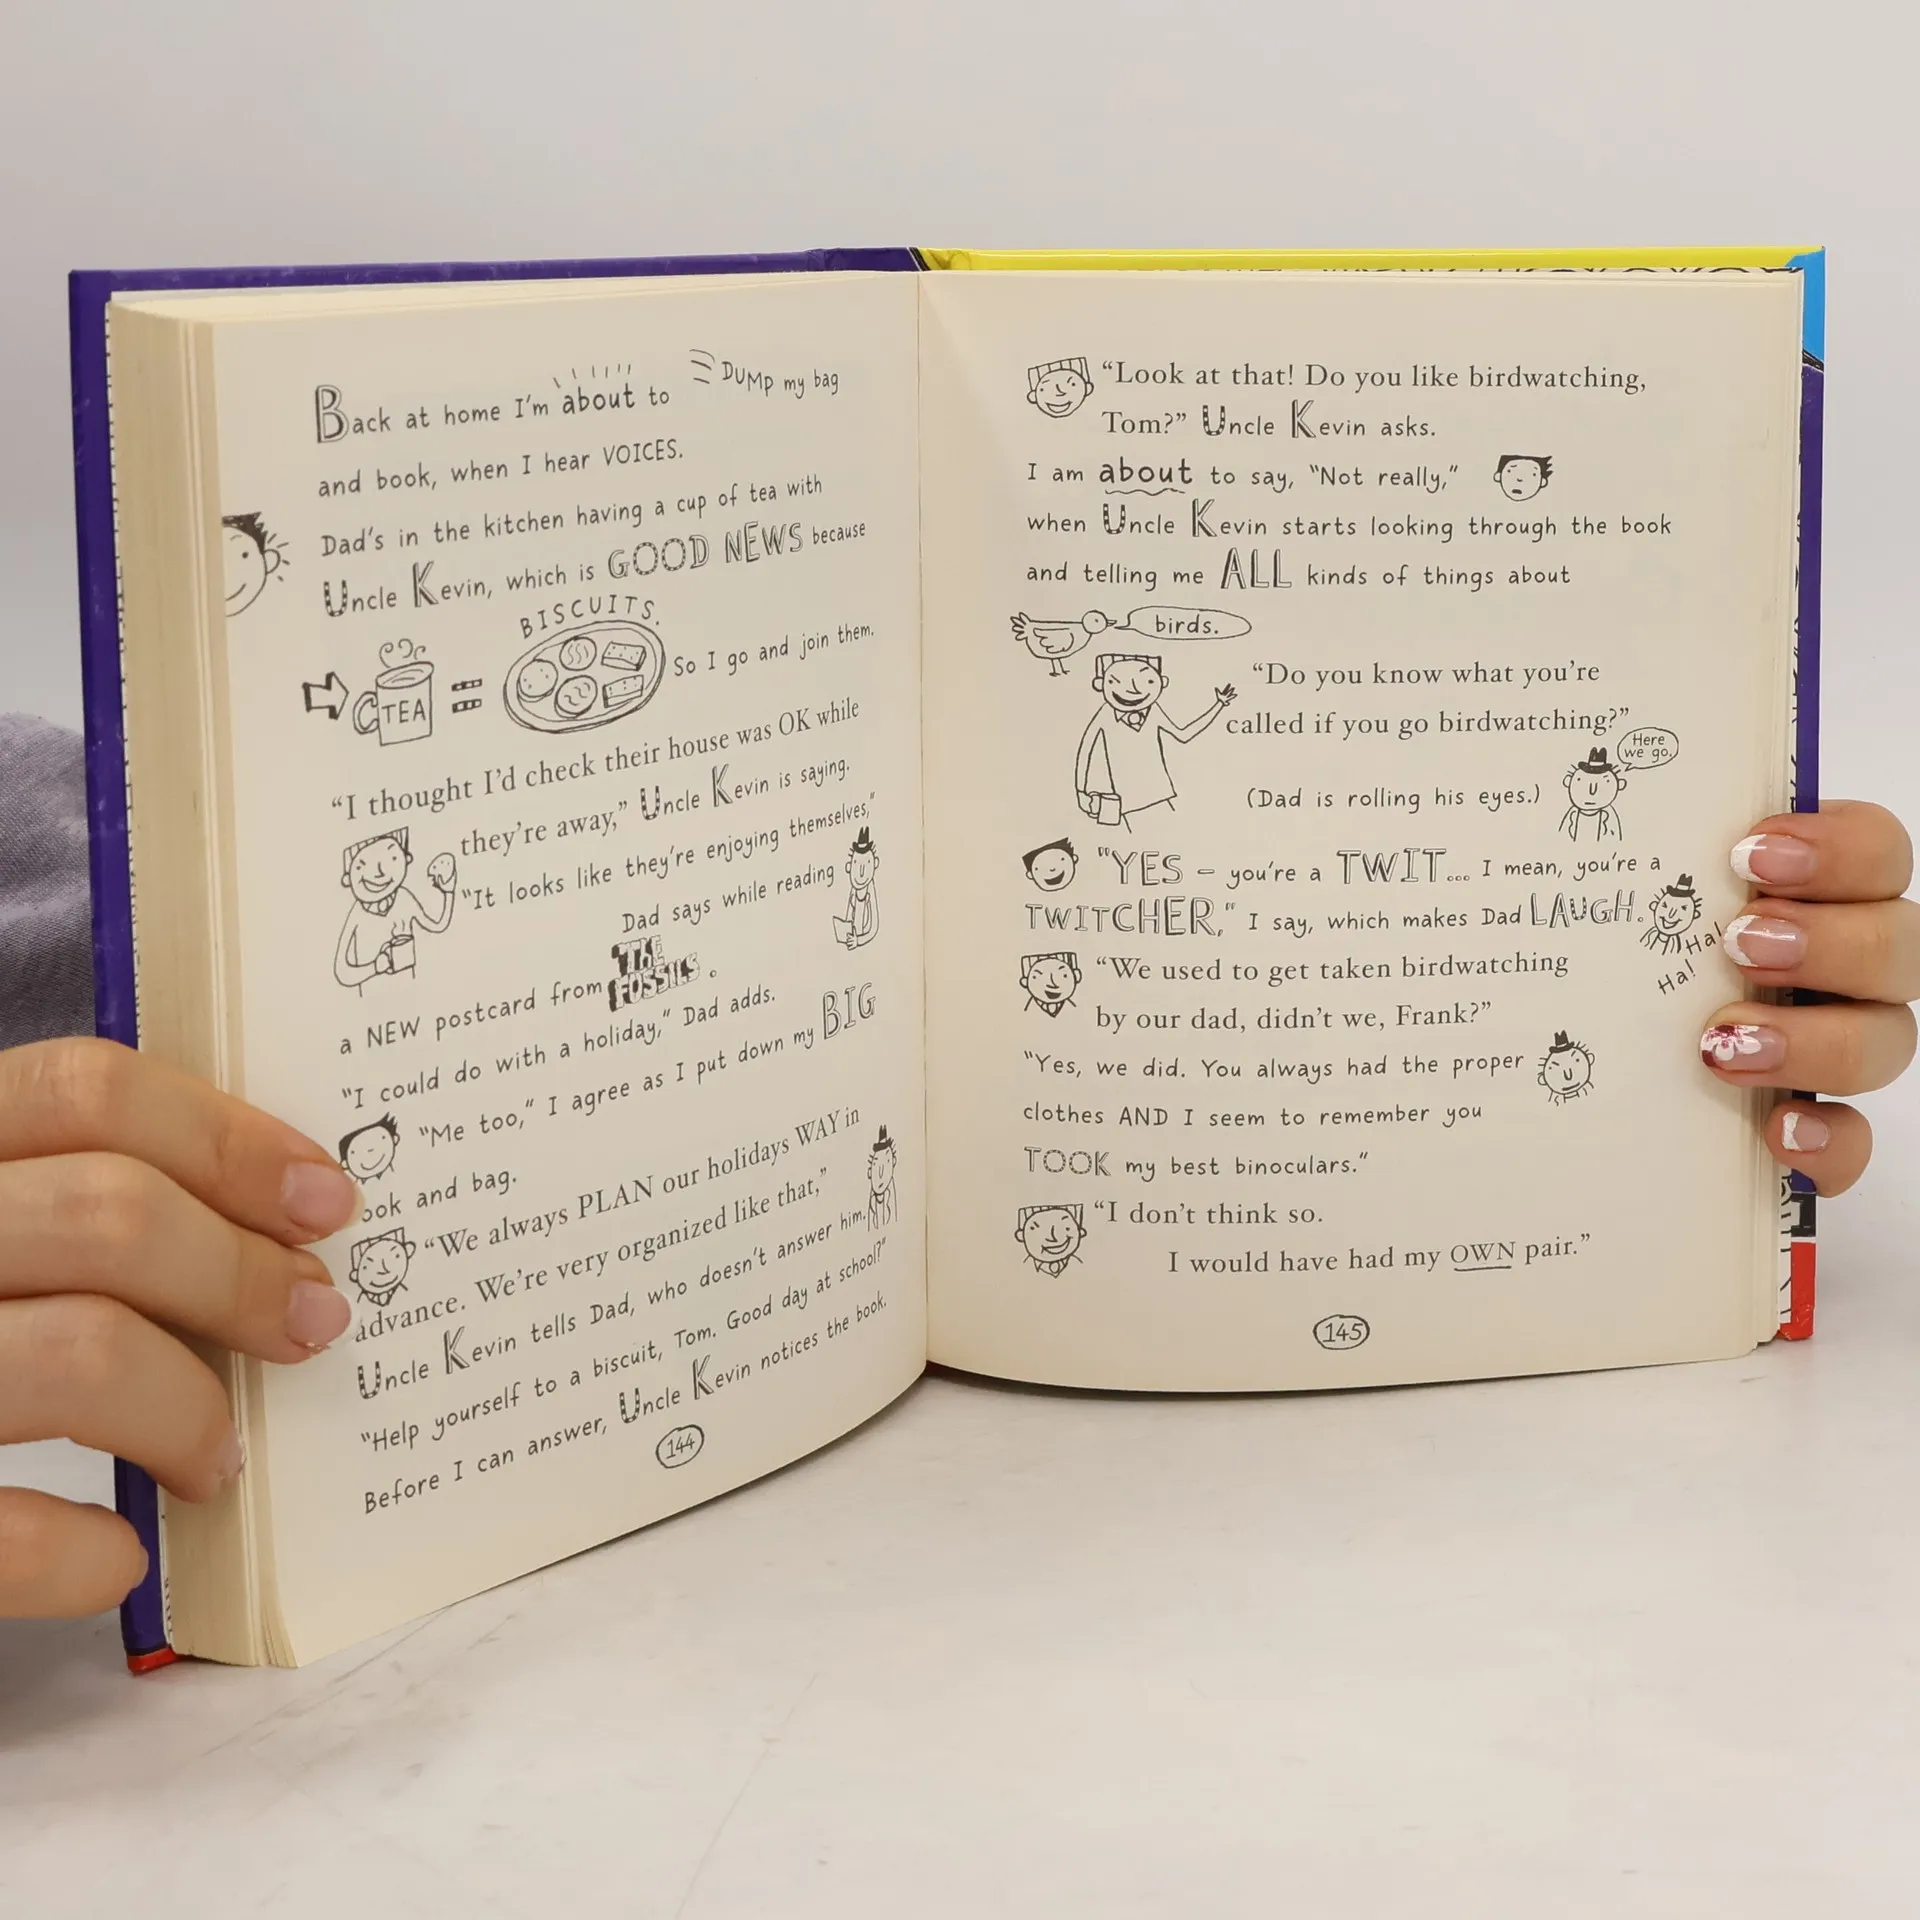 Back at home I'm about to DUMP my bag
and book, when I hear VOICES.
Dad's in the kitchen having a cup of tea with
Uncle Kevin, which is GOOD NEWS because
BISCUITS.
TEA = So I go and join them.
“I thought I'd check their house was OK while
they're away,” Uncle Kevin is saying.
“It looks like they're enjoying themselves,”
Dad says while reading
a NEW postcard from THE FOSSILS.
“I could do with a holiday,” Dad adds.
“Me too,” I agree as I put down my BIG
ook and bag.
“We always PLAN our holidays WAY in
advance. We're very organized like that,”
Uncle Kevin tells Dad, who doesn't answer him.
“Help yourself to a biscuit, Tom. Good day at school?”
Before I can answer, Uncle Kevin notices the book.
144
“Look at that! Do you like birdwatching,
Tom?” Uncle Kevin asks.
I am about to say, “Not really,”
when Uncle Kevin starts looking through the book
and telling me ALL kinds of things about
birds.
“Do you know what you're
called if you go birdwatching?”
Here
we go.
(Dad is rolling his eyes.)
“YES – you're a TWIT... I mean, you're a
TWITCHER,” I say, which makes Dad LAUGH.
Ha!
Ha!
“We used to get taken birdwatching
by our dad, didn't we, Frank?”
“Yes, we did. You always had the proper
clothes AND I seem to remember you
TOOK my best binoculars.”
“I don't think so.
I would have had my OWN pair.”
145